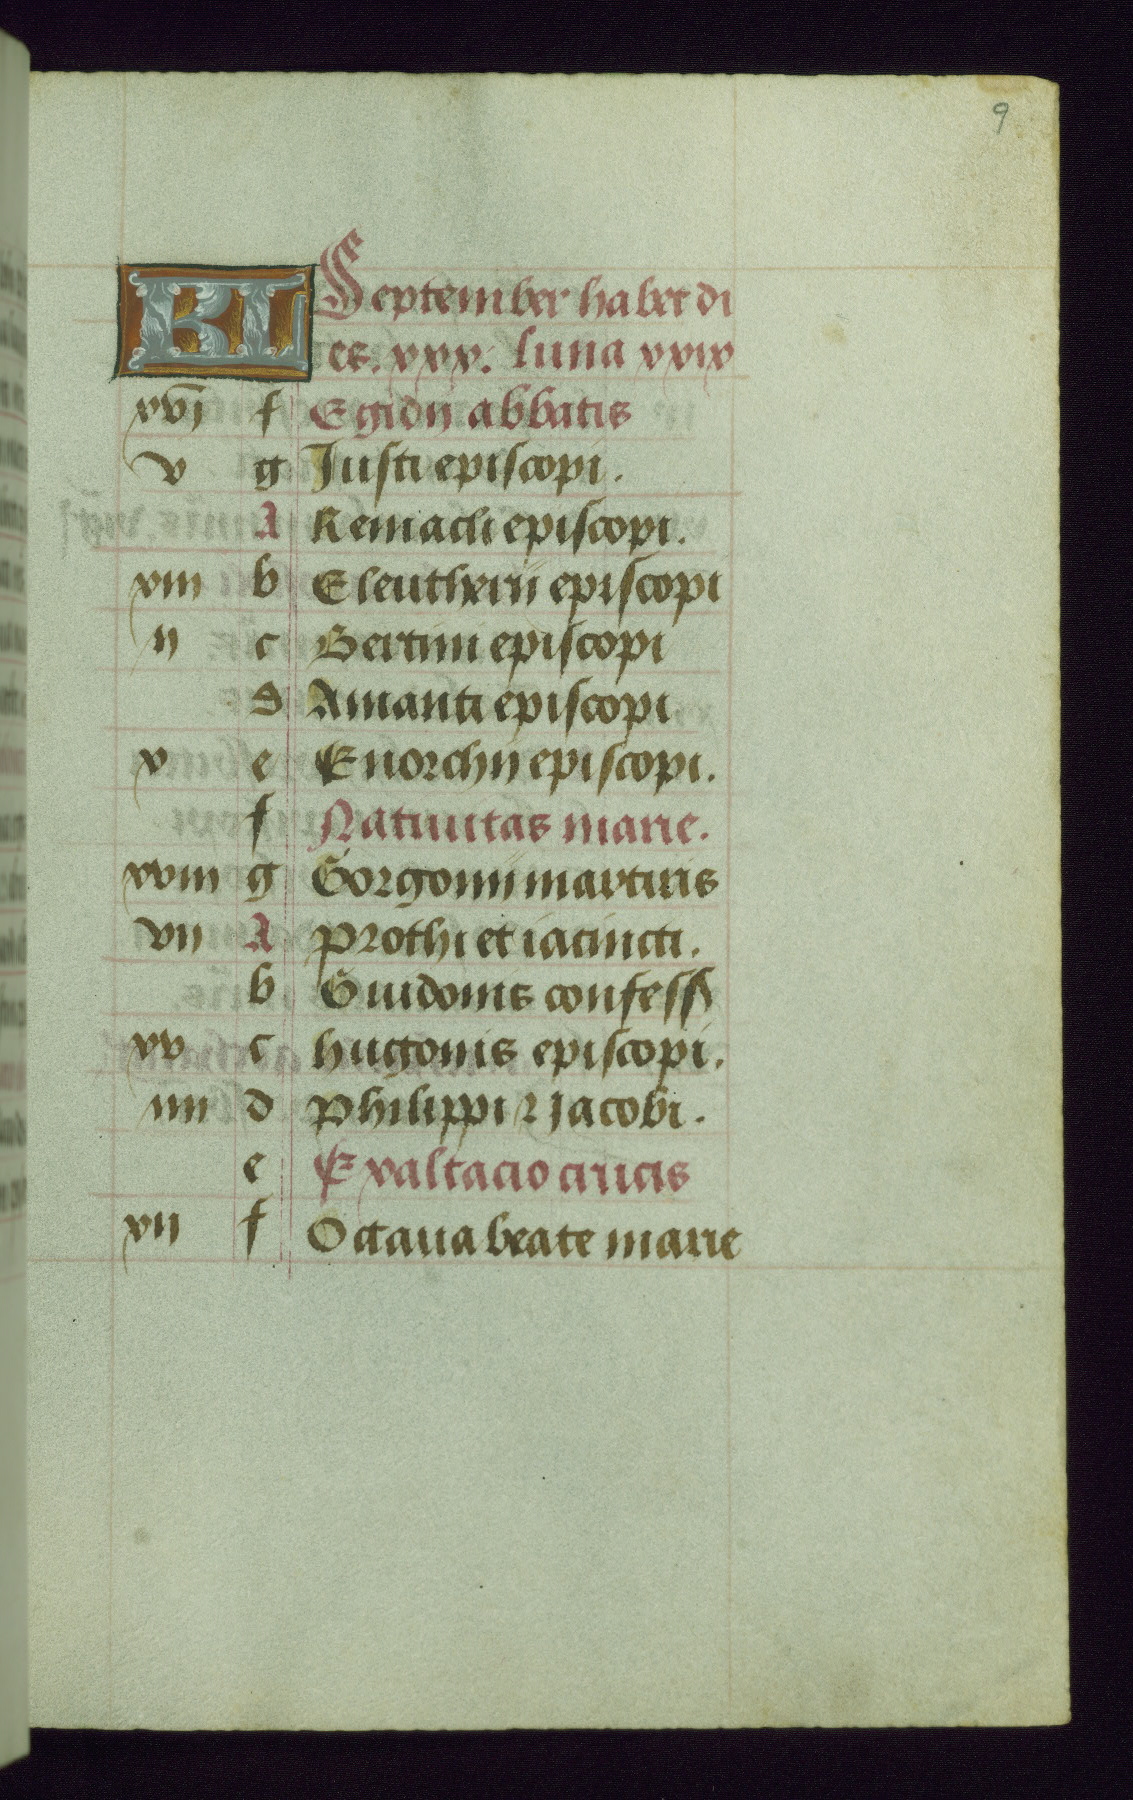 9
KL September habet di
es. xxx. luna xxix
xvi f Egidij abbatis
v g Justi episcopi.
A Remacli episcopi.
xiii b Eleutherii episcopi
ii c Bertini episcopi
d Amanti episcopi
x e Enorchij episcopi.
f Natiuitas marie.
xviii g Gorgonii martiris
vii A Prothi et iacincti.
b Guidonis confess
xv c hugonis episcopi.
iiii d philippi ⁊ Jacobi.
e Exaltacio crucis
xii f Octaua beate marie